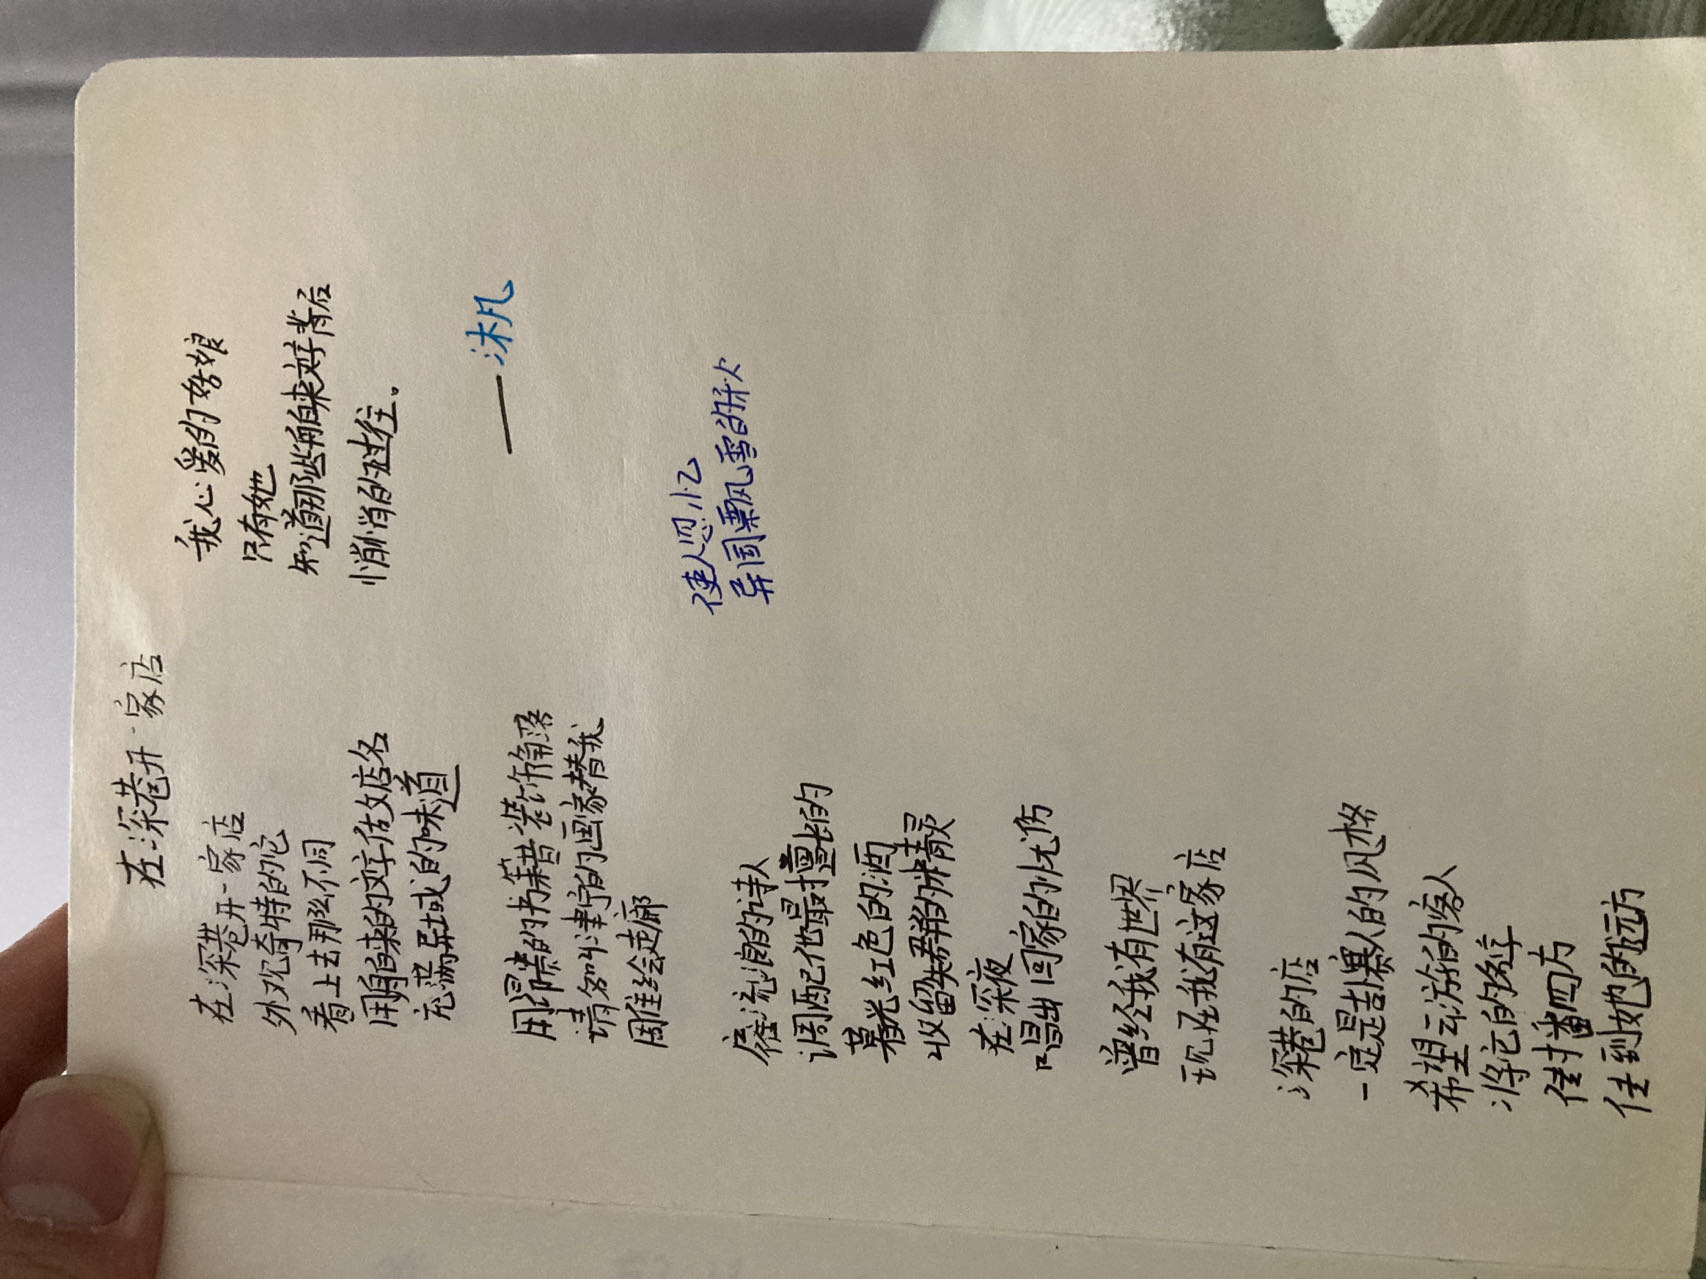 在深巷开一家店
在深巷开一家店
外观奇特的它
看上去那么不同
用舶来的文字做店名
充满异域的味道
用昂贵的书籍装饰角落
请名叫津宁的画家替我
周住绘走廊
雇流浪的诗人
调配他最擅长的
暮光红色的酒
收留失群的精灵
在深夜
唱出回家的忧伤
曾经我有世界
现在我有这家店
深巷的店
一定是卦赛人的风格
希望云游的客人
将它的名字
传播四方
传到她的远方
我心爱的姑娘
只有她
知道那些舶来文字背后
悄悄的过往。
——沐凡
使人忽忆
异国飘雪的秋